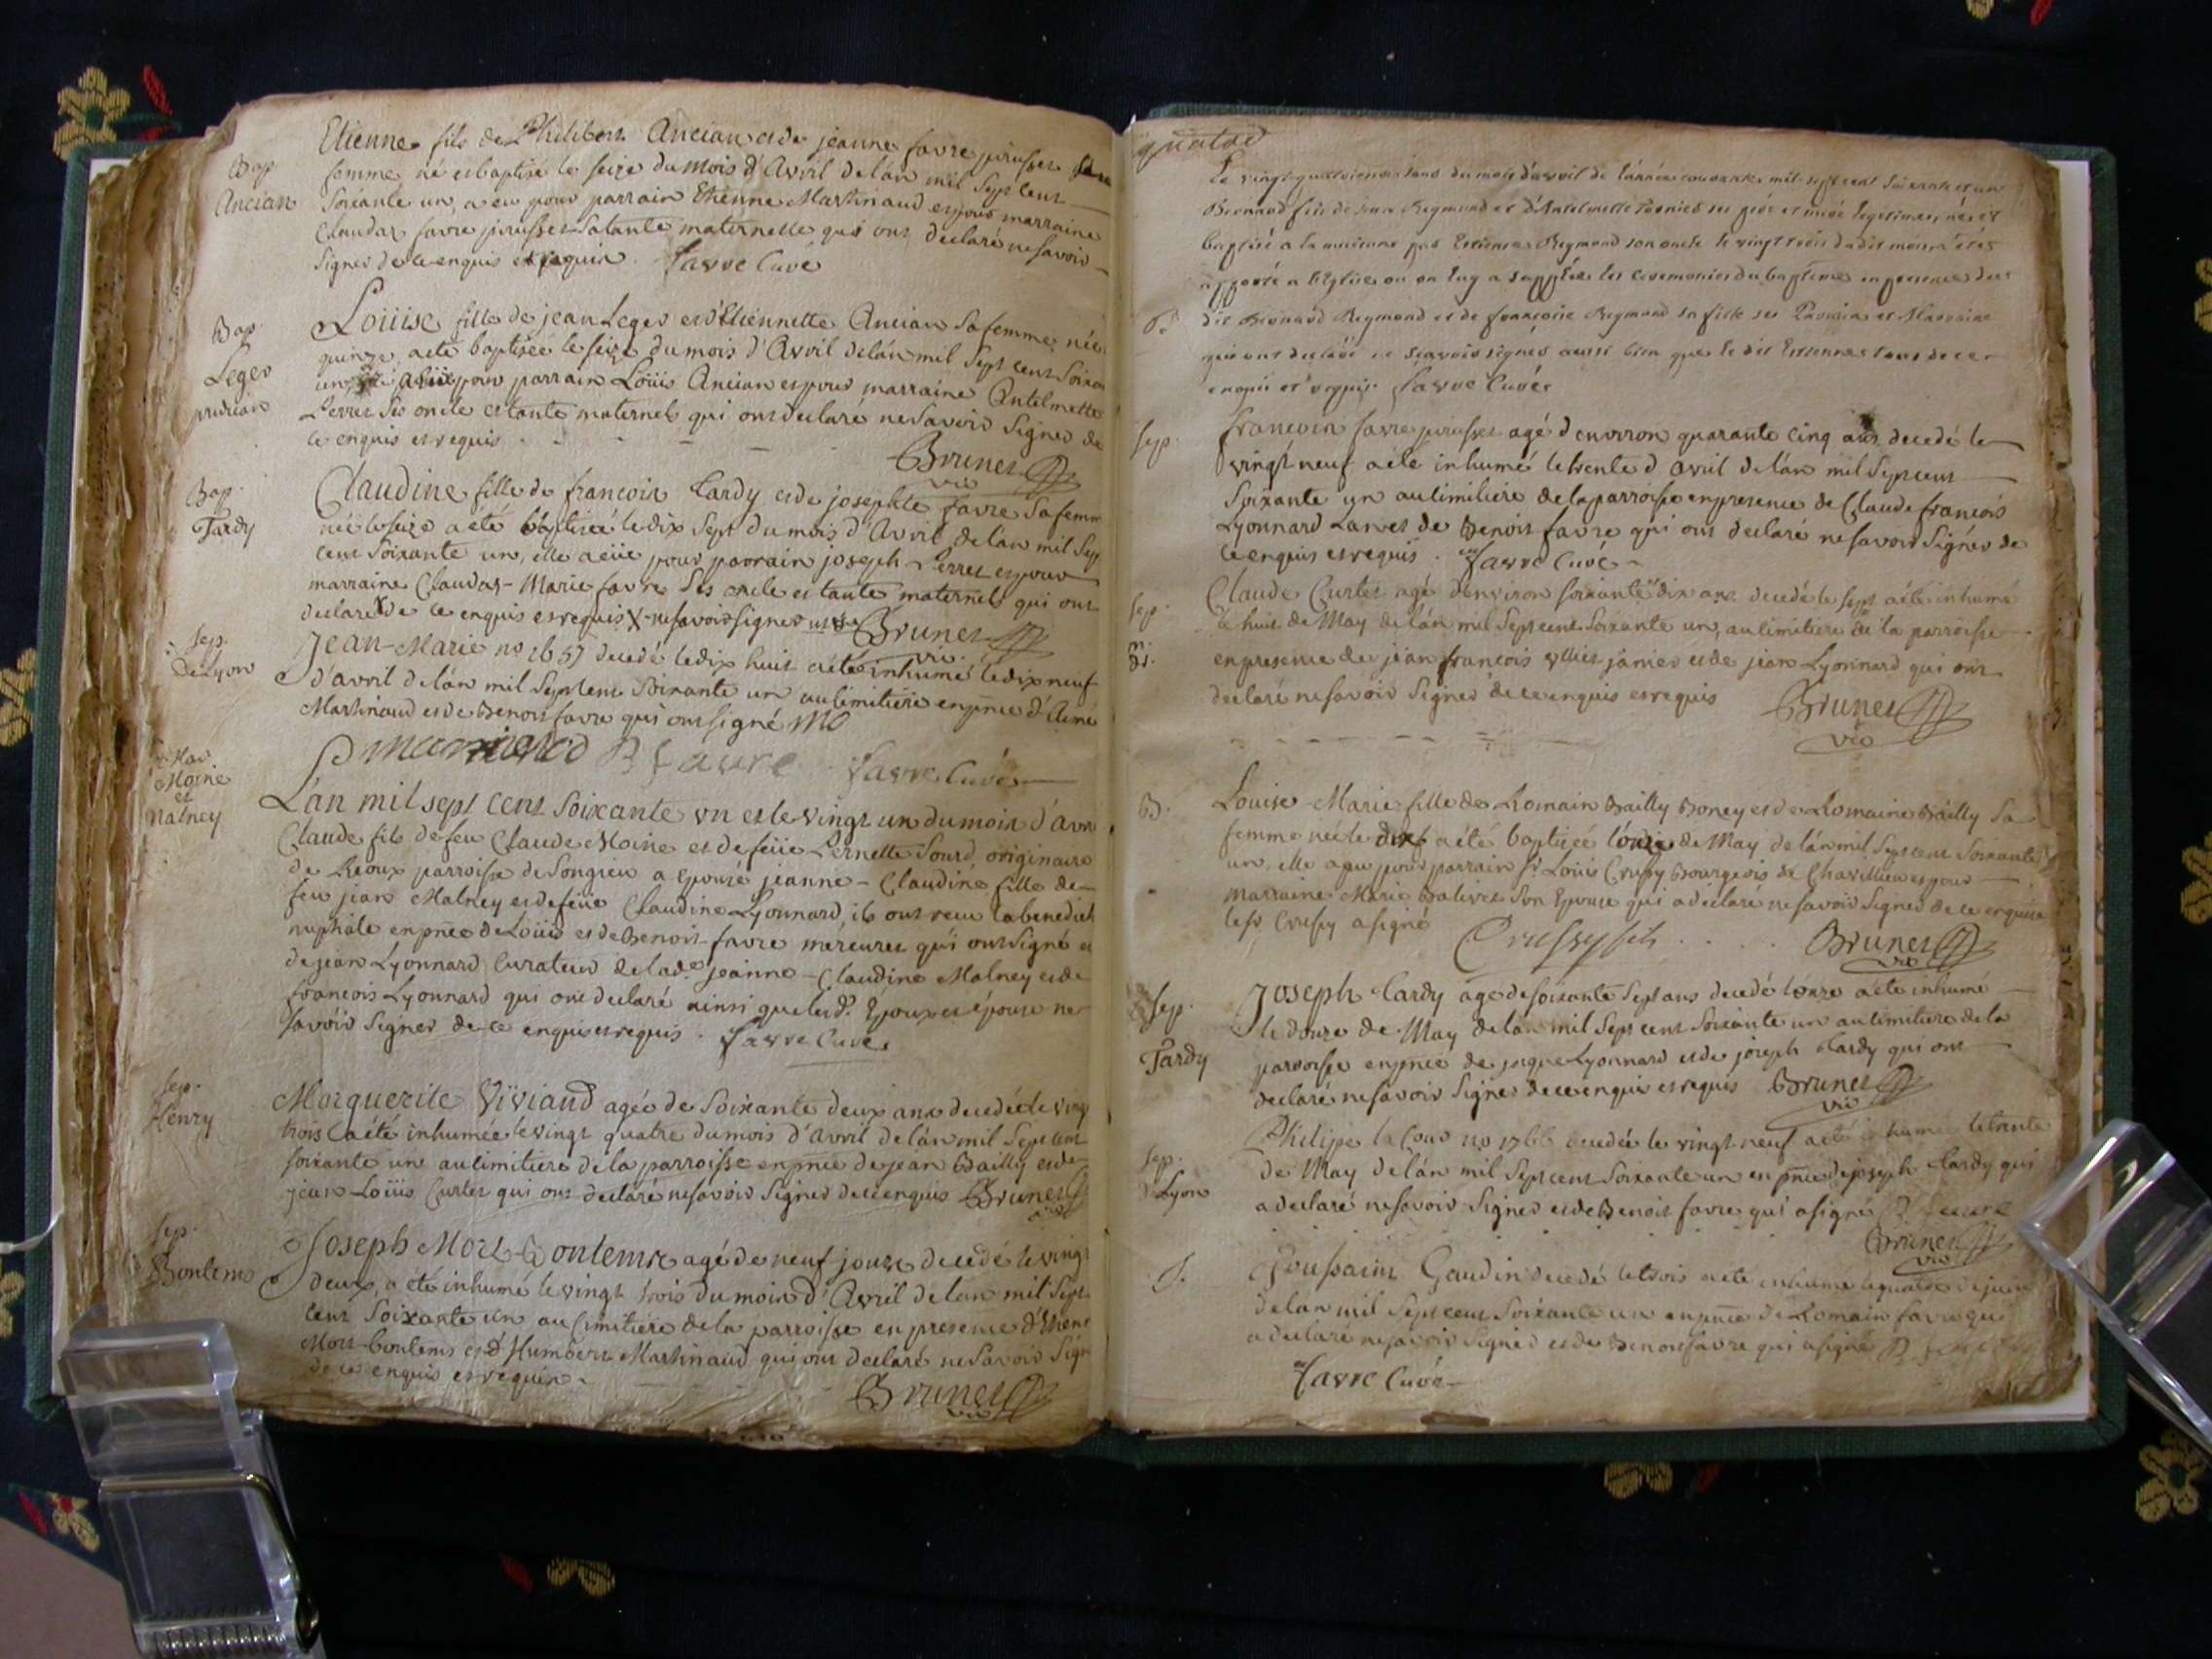 Bap
Ancian
Etienne fils de Philibert Ancian et de jeanne favre jirusset sa
femme né et baptisé le seize du mois d'Avril de lán mil sept cent
soixante un, a eu pour parrain Etienne Martinaud et pour marraine
Claudaz favre jirusset sa tante maternelle qui ont declaré ne savoir
signer de ce enquis et requis. favre Curé
Bap
Leger
Loüise fille de jean Leger et d'Etiennette Ancian sa femme née
quinze, a été baptisée le seize du mois d'Avril de lán mil sept cent soixan
un a eüe pour parrain Loüis Ancian et pour marraine Antelmette
Perret ses oncle et tante maternels qui ont declaré ne savoir signer de
ce enquis et requis
Brunet vic
Bap.
Tardy
Claudine fille de francois Tardy et de josephte favre sa femme
née le seize a été baptisée le dix sept du mois d'Avril de lán mil sep
cent soixante un, elle a eüe pour parrain joseph Perret et pour
marraine Claudaz-Marie favre ses oncle et tante maternels qui ont
declaré X de ce enquis et requis X ne savoir signer Brunet
vic.
Sep.
de Lyon
Jean-Marie no 1657 decedé le dix huit a été inhumé le dix neuf
d'avril de lán mil sept cent soixante un au cimitiere en pnce d'Aimé
Martinaud et de Benoit favre qui ont signé
martinaud B favre favre Curé
Mar
Moine
et
Malney
L'an mil sept cent soixante un et le vingt un du mois d'avri
Claude fils de feu Claude Moine et de feüe Pernette Sourd, originaire
de Reoux parroisse de Songieu a épousé jeanne-Claudine fille de
feu jean Malney et de feüe Claudine Lyonnard, ils ont recu la benedict
nuptiale en pnce de Loüis et de Benoit favre mercuret qui ont signé et
de jean Lyonnard Curateur de lade jeanne-Claudine Malney et de
francois Lyonnard qui ont declaré ainsi que lesd. Epoux et épouse ne
savoir signer de ce enquis et requis. favre Curé
Sep.
Henry
Marguerite Viviand agée de soixante deux ans decedée le vingt
trois a été inhumée le vingt quatre du mois d'Avril de lán mil sept cent
soixante un au cimitiere de la parroisse en pnce de jean Bailly et de
jean Loüis Curtet qui ont declaré ne savoir signer de ce enquis Brunet
vic
Sep.
Bontems
Joseph Mort-Bontems agé de neuf jours decedé le vingt
deux, a été inhumé le vingt trois du mois d'Avril de lán mil sept
cent soixante un au Cimitiere de la parroisse en presence d'Etiene
Mort-bontems et d'Humbert Martinaud qui ont declaré ne savoir sign
de ce enquis et requis.
Brunet
vic
Le vingt-quatrieme du mois d'avril de l'année courante mil sept cent soixante et un
Bernard fils de Jean Reymond et d'Antelmette ses pere et mere legitimes, né et
baptisé a la maison par Estienne Reymond son oncle le vingt trois dudit mois a été
apporté a l'Eglise où on luy a supplée les ceremonies du baptême en presence du
dit Bernard Reymond et de francoise Reymond sa fille ses Parrain et Marraine
qui ont declaré ne sçavoir signer aussi bien que le dit Estienne tous de ce
enquis et requis. favre Curé
Sep.
francois favre jirusset agé d'environ quarante cinq ans decedé le
vingt neuf a été inhumé le trente d'avril de lán mil sept cent
soixante un au cimitiere de la parroisse en presence de Claude francois
Lyonnard Lanet de Benoit favre qui ont declaré ne savoir signer de
ce enquis et requis. favre Curé
Sep.
Claude Curtet agé d'environ soixante dix ans decedé le sept a été inhumé
le huit de May de lán mil sept cent soixante un, au cimitiere de la parroisse
en presence de jean francois janier et de jean Lyonnard qui ont
declaré ne savoir signer de ce enquis et requis Brunet
vic
B.
Louise-Marie fille de Romain Bailly Boney et de Romaine Bailly sa
femme née le dix a été baptisée lónze de May de lán mil sept cent soixante
un, elle a eu pour parrain Sr Loüis Crussy Bourgeois de Chavillieu et pour
marraine Marie Balivet son épouse qui a declaré ne savoir signer de ce enquise
le sr Crussy a signé
Crussy fils Brunet
vic
Sep.
Tardy
Joseph Tardy agé de soixante sept ans decedé lónze a été inhumé
le douze de May de lán mil sept cent soixante un au cimitiere de la
parroisse en pnce de jaque Lyonnard et de joseph Tardy qui ont
declaré ne savoir signer de ce enquis et requis Brunet
vic
Sep.
de Lyon
Philipe la Cour no 1766 decedée le vingt neuf a été inhumée le trente
de May de lán mil sept cent soixante un en pnce de joseph Tardy qui
a declaré ne savoir signer et de Benoit favre qui a signé B favre
Brunet
vic
S.
Toussaint Gaudin decedé le trois a été inhumé le quatre de juin
de lán mil sept cent soixante un en pnce de Romain favre qui
a declaré ne savoir signer et de Benoit favre qui a signé B favre
favre Curé